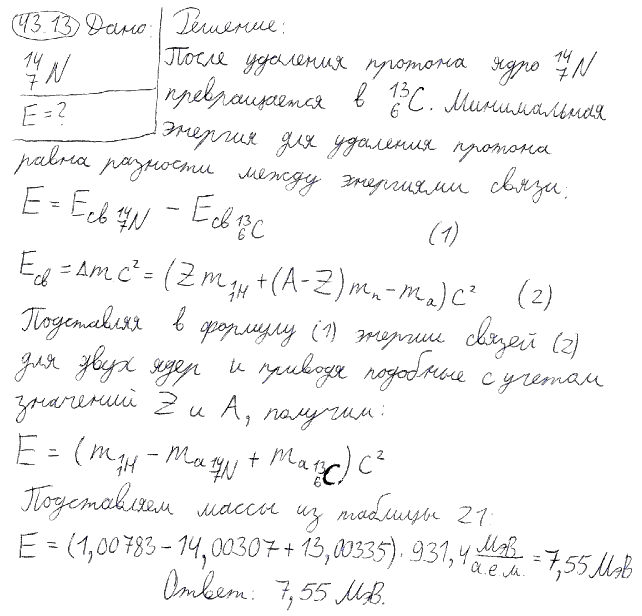 43.13 Дано: Решение:
¹⁴₇N После удаления протона ядро ¹⁴₇N
E = ? превращается в ¹³₆C. Минимальная
энергия для удаления протона
равна разности между энергиями связи:
E = Eсв ¹⁴₇N − Eсв ¹³₆C (1)
Eсв = Δmc² = (Zm¹₁H + (A−Z)mn − ma)c² (2)
Подставляя в формулу (1) энергии связей (2)
для двух ядер и приводя подобные с учетом
значений Z и A, получим:
E = (m¹₁H − ma¹⁴₇N + ma¹³₆C)c²
Подставляем массы из таблицы 21:
E = (1,00783−14,00307+13,00335)·931,4 МэВ/а.е.м. = 7,55 МэВ
Ответ: 7,55 МэВ.